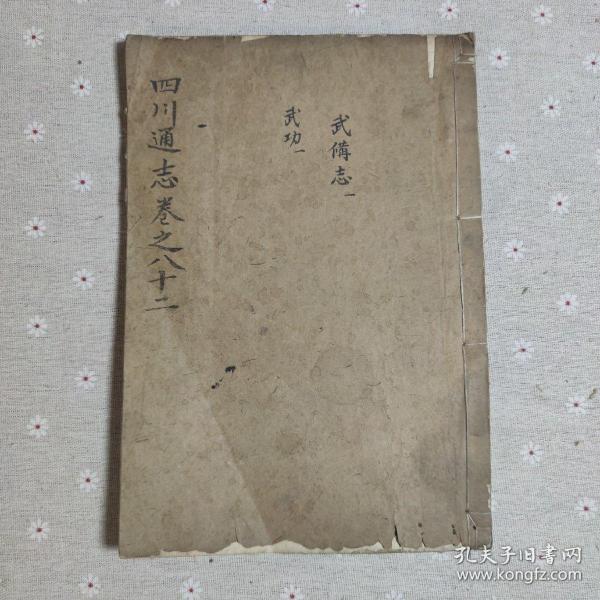 四川通志卷之八十二
武備志一
武功一
孔夫子旧書网
www.kongfz.com